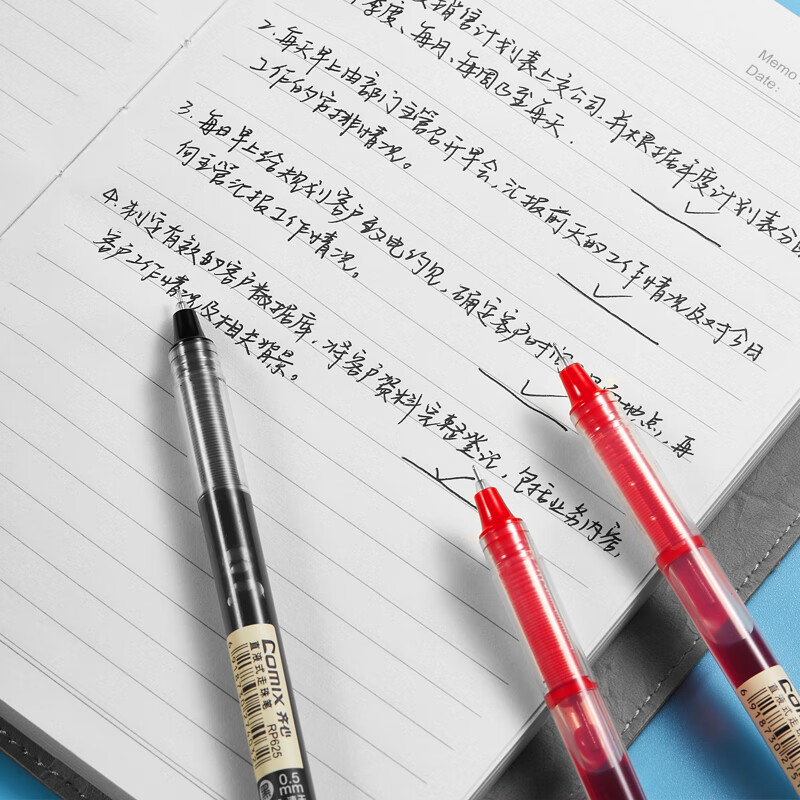 Memo
Date:
销售计划表上交公司.并根据年度计划表分
季度、每月、每周乃至每天.
2.每天早上由部门主管召开早会,汇报前天的工作情况及对今日
工作的安排情况。
3.每日早上给规划客户致电约见,确定客户时间 地点,再
向主管汇报工作情况。
4.制定有效的客户数据库.将客户资料完整登记,包括业务内容,
客户工作情况及相关背景。
comix 齐心
直液式走珠笔 RP625
0.5
comix
直液式走珠笔
6 918730